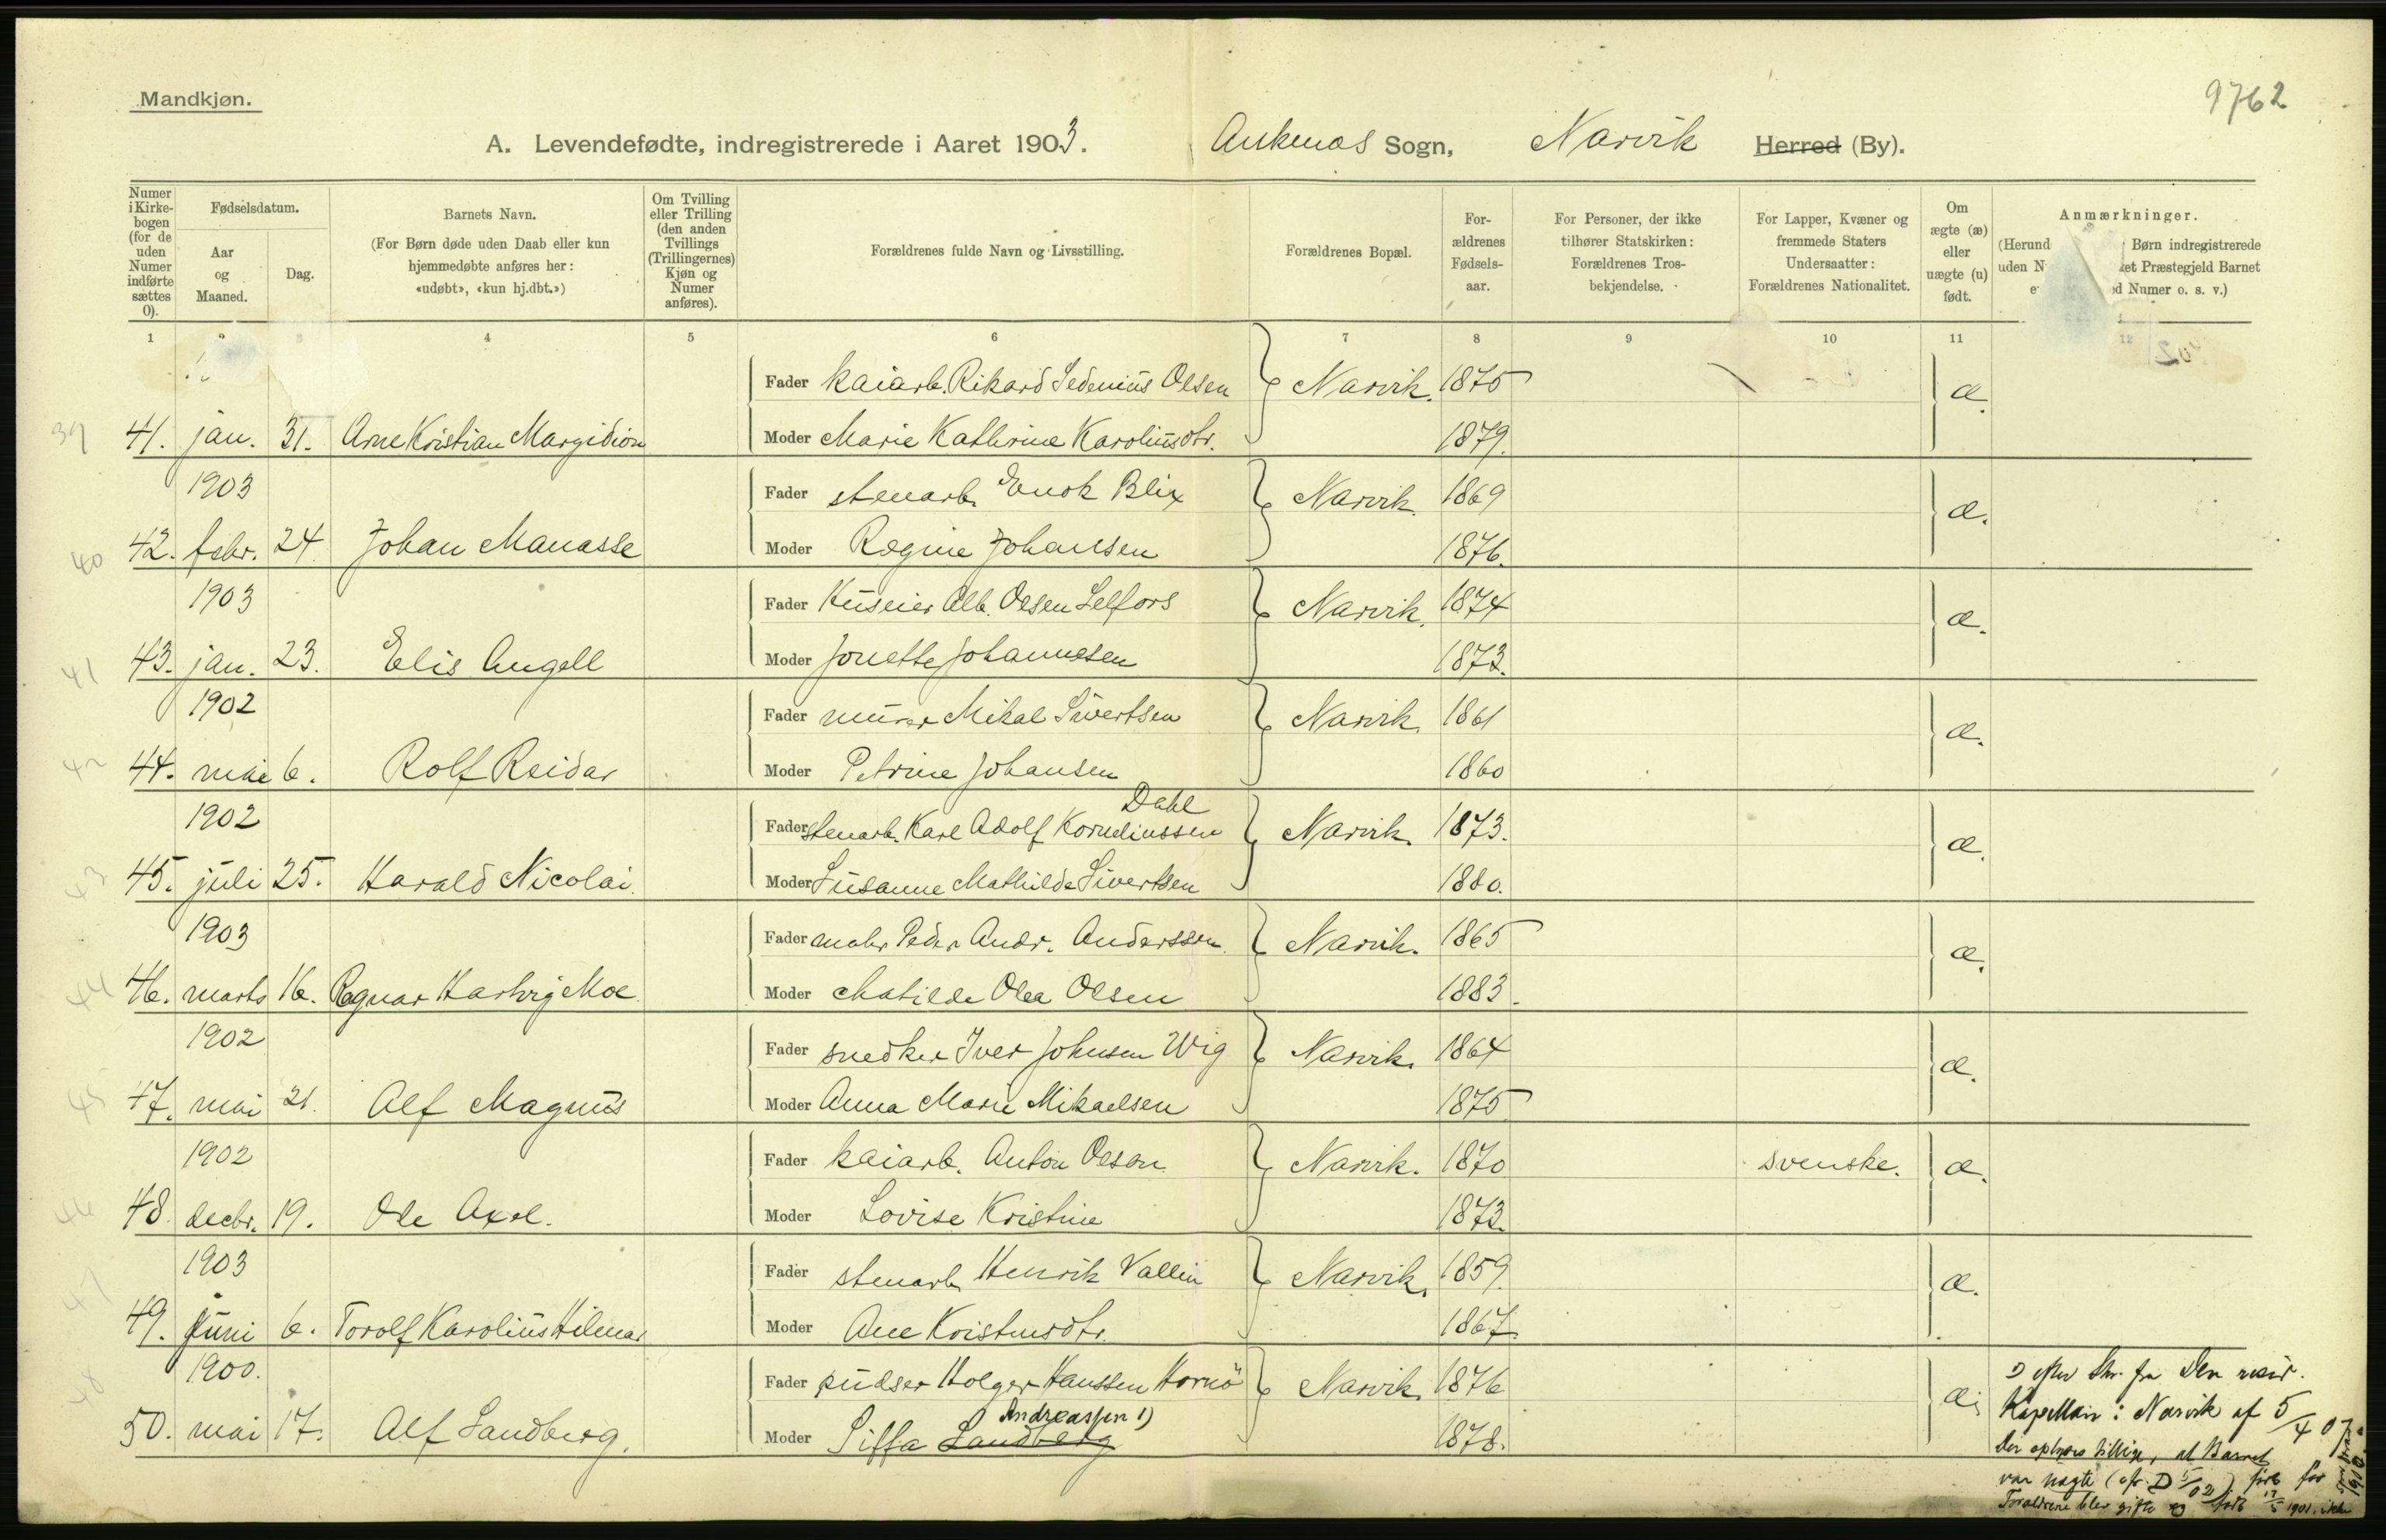 Mandkjøn.
9762
A. Levendefødte, indregistrerede i Aaret 1903. Ankenæs Sogn, Narvik Herred (By).
Numer i Kirke-bogen (for de uden Numer indførte sættes 0).
Fødselsdatum.
Aar og Maaned.
Dag.
Barnets Navn.
(For Børn døde uden Daab eller kun hjemmedøbte anføres her: «udøbt», «kun hj.dbt.»)
Om Tvilling eller Trilling (den anden Tvillings (Trillingernes) Kjøn og Numer anføres).
Forældrenes fulde Navn og Livsstilling.
Forældrenes Bopæl.
For-ældrenes Fødsels-aar.
For Personer, der ikke tilhører Statskirken: Forældrenes Tros-bekjendelse.
For Lapper, Kvæner og fremmede Staters Undersaatter: Forældrenes Nationalitet.
Om ægte (æ) eller uægte (u) født.
Anmærkninger.
(Herund Børn indregistrerede
uden N et Præstegjeld Barnet
e d Numer o. s. v.)
1 3 4 5 6 7 8 9 10 11 12
Fader kaiarb. Rikard Sedenius Olsen Narvik. 1875 æ.
39 41. jan. 31. Arne Kristian Margidion Moder Marie Kathrine Karoliusdtr. 1879.
1903 Fader stenarb. Enok Blix Narvik. 1869 æ.
40 42. febr. 24 Johan Manasse Moder Regine Johansen 1876.
1903 Fader Huseier Alb. Olsen Selfors Narvik. 1874 æ.
41 43. jan. 23. Elis Angell Moder Jonette Johannesen 1873.
1902 Fader murer Mikal Sivertsen Narvik. 1861 æ.
42 44. mai 6. Rolf Reidar Moder Petrine Johansen 1860
Dahl
1902 Fader stenarb. Karl Adolf Korneliussen Narvik. 1873. æ.
43 45. juli 25. Harald Nicolai. Moder Susanne Mathilde Sivertsen 1880.
1903 Fader maler Peder Andr. Anderssen Narvik. 1865 æ.
44 46. marts 16. Ragnar Hartvig Moe. Moder Matilde Olea Olsen 1883.
1902 Fader snedker Iver Johnsen Wig Narvik. 1864 æ.
45 47. mai 21. Alf Magnus Moder Anna Marie Mikaelsen 1875
1902 Fader kaiarb. Anton Olson Narvik. 1870 svenske. æ.
46 48. decbr. 19. Ole Axel. Moder Lovise Kristine 1873.
1903 Fader stenarb. Henrik Vallin Narvik. 1859. æ.
47 49. Juni 6. Torolf Karolius Hilmar Moder Ane Kristinsdtr. 1867.
1900. Fader pudser Holger Hanssen Hornö Narvik 1876 æ;
Andreassen 1)
48 50. mai 17. Alf Sandberg. Moder Siffa Sandberg 1878.
efter Skr. fra den resid.
Kapellan i Narvik af 5/4 07
Der oplyses tillige, at Barnet
var uægte (cfr. D 5/02) født før
Forældrene blev gifte og født 17/5 1901, ikke
1900.